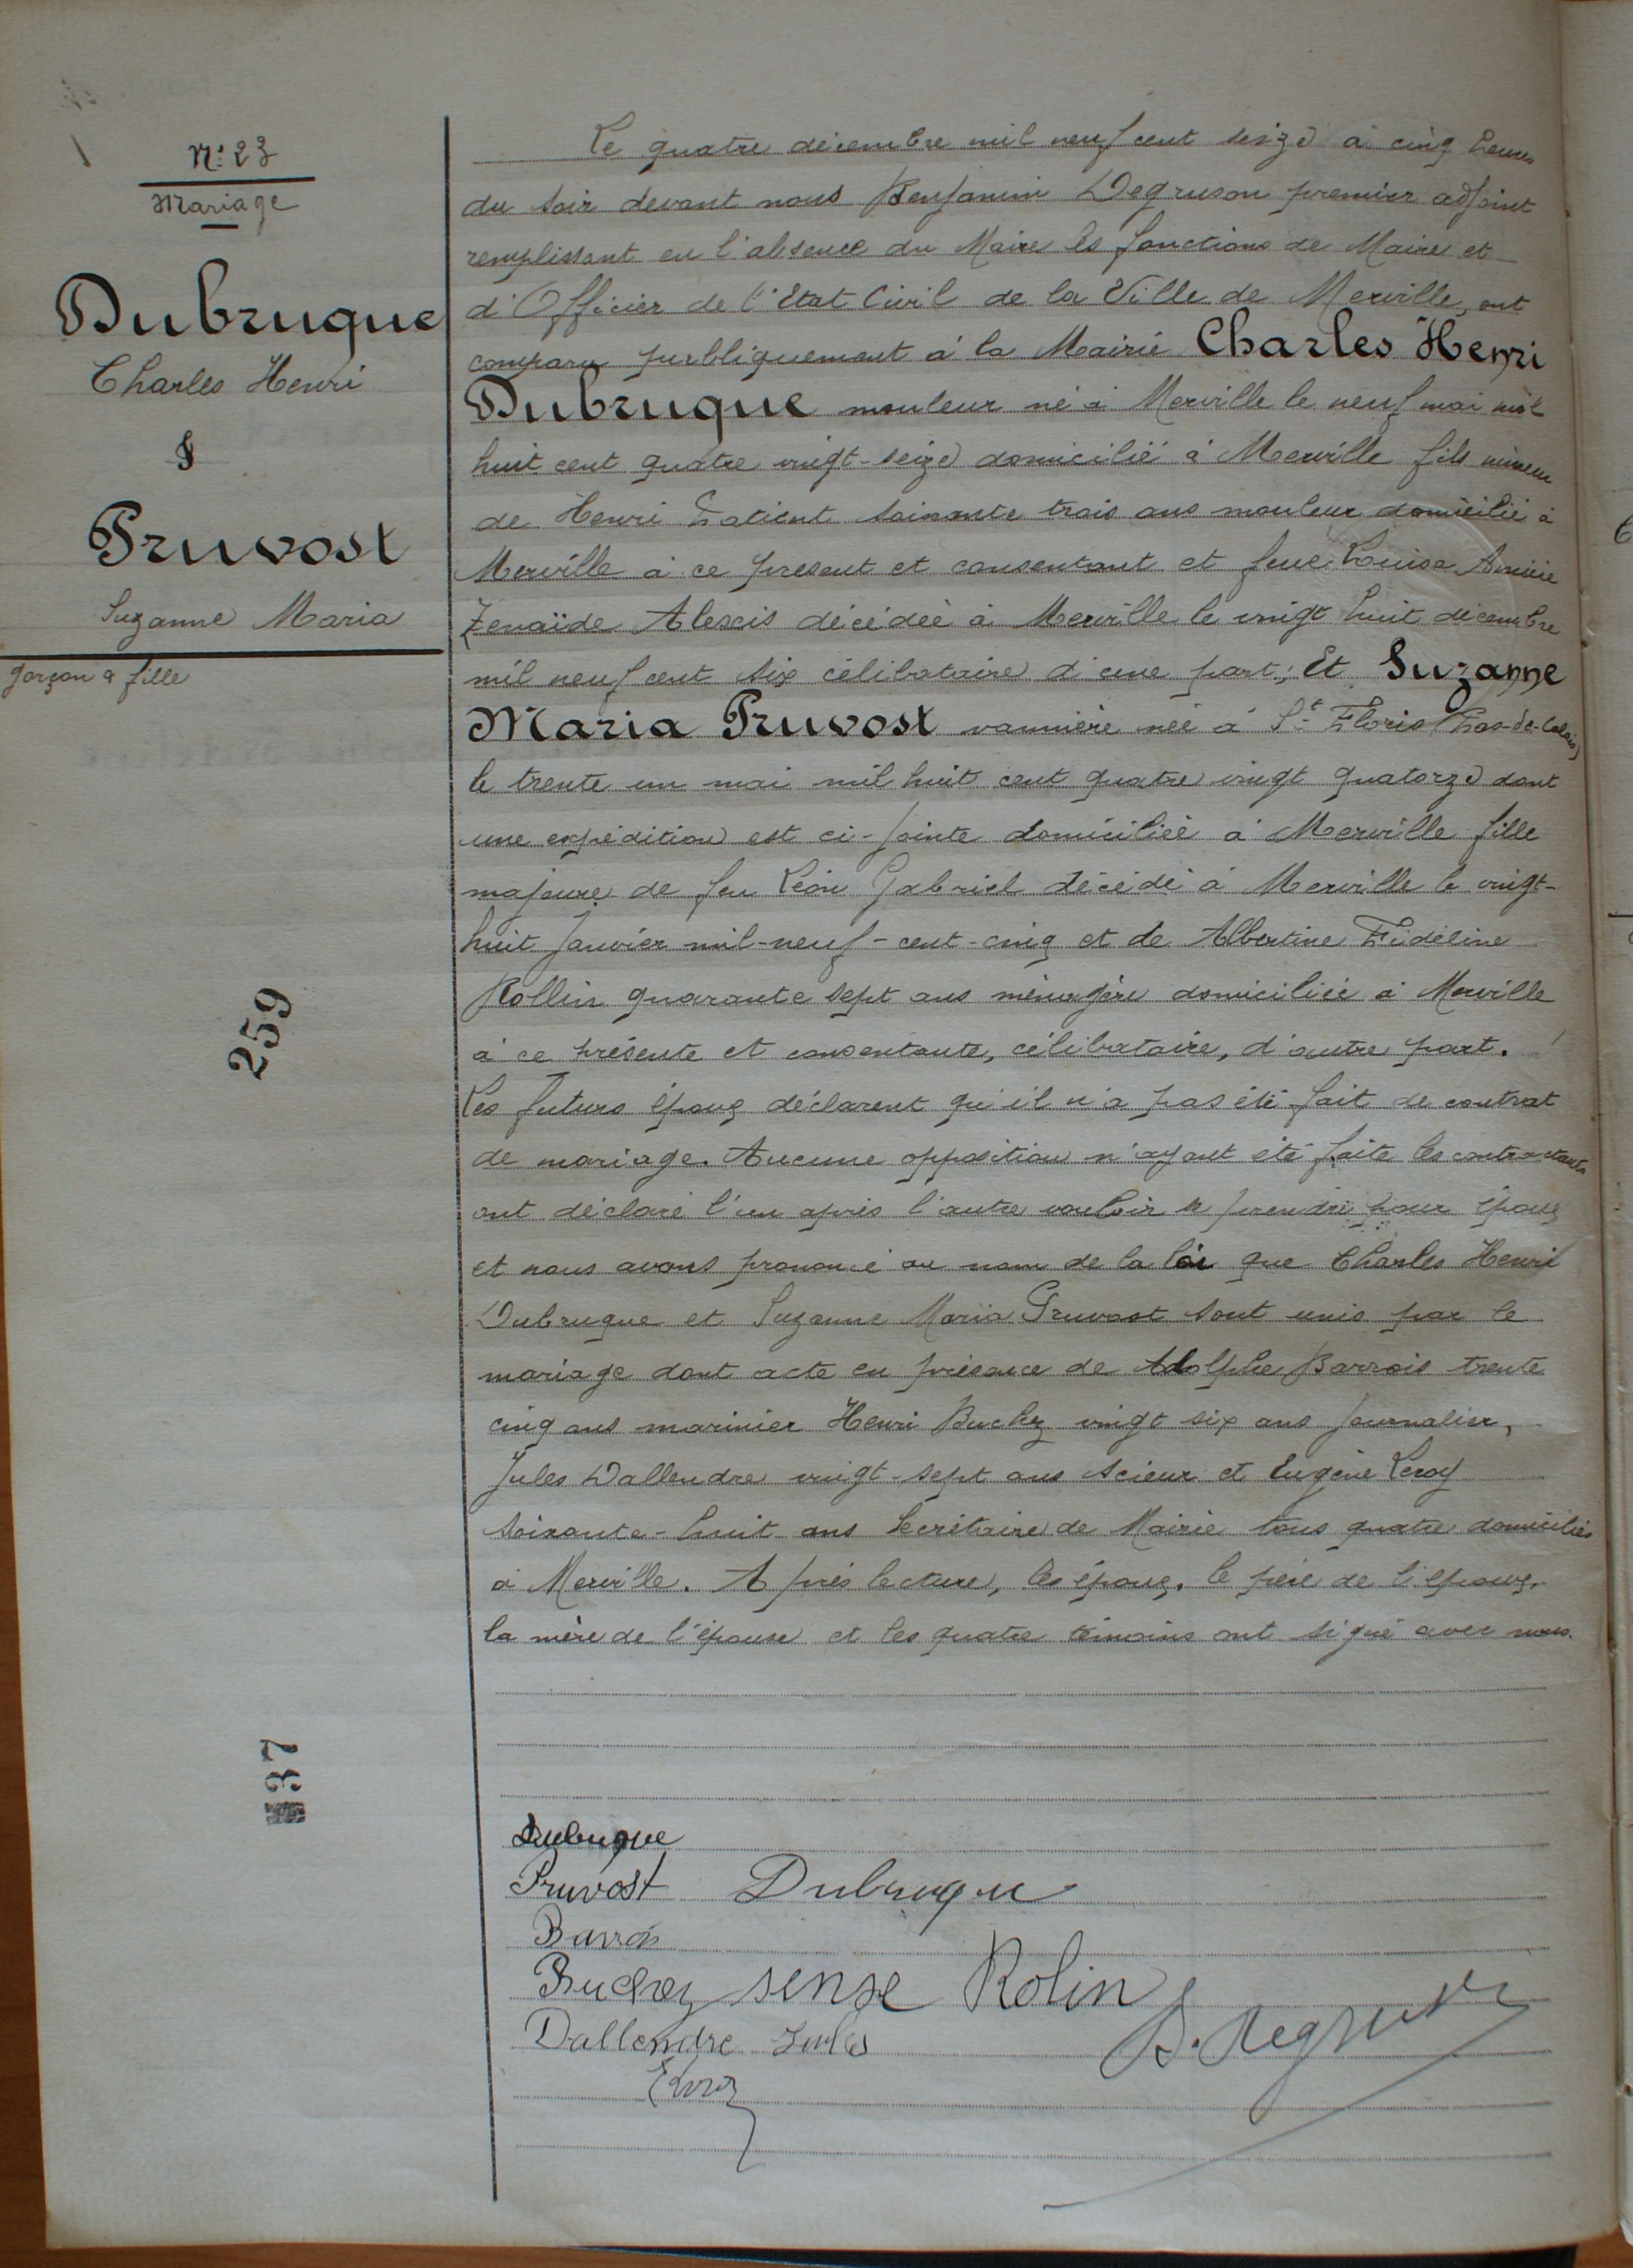 N° 23
Mariage
Dubruque
Charles Henri
&
Pruvost
Suzanne Maria
garçon & fille
259
37
Le quatre décembre mil neuf cent seize à cinq heures
du soir devant nous Benjamin Degruson premier adjoint
remplissant en l'absence du Maire les fonctions de Maire et
d'Officier de l'Etat Civil de la Ville de Merville, ont
comparu publiquement à la Mairie Charles Henri
Dubruque mouleur né à Merville le neuf mai mil
huit cent quatre vingt-seize domicilié à Merville fils mineur
de Henri soixante trois ans mouleur domicilié à
Merville à ce présent et consentant et feue Louise
Zenaïde Alexis décédée à Merville le vingt huit décembre
mil neuf cent six célibataire d'une part; Et Suzanne
Maria Pruvost vannière née à St Floris (Pas-de-Calais)
le trente un mai mil huit cent quatre vingt quatorze dont
une expédition est ci-jointe domiciliée à Merville fille
majeure de feu Léon Gabriel décédé à Merville le vingt-
huit Janvier mil-neuf-cent-cinq et de Albertine Fidéline
Rollin quarante sept ans ménagère domiciliée à Merville
à ce présente et consentante, célibataire, d'autre part.
Les futurs époux déclarent qu'il n'a pas été fait de contrat
de mariage. Aucune opposition n'ayant été faite les contractants
ont déclaré l'un après l'autre vouloir se prendre pour époux
et nous avons prononcé au nom de la loi que Charles Henri
Dubruque et Suzanne Maria Pruvost sont unis par le
mariage dont acte en présence de Adolphe Barrois trente
cinq ans marinier Henri Buchez vingt six ans journalier,
Jules Dallendre vingt-sept ans scieur et Eugène Leroy
soixante-huit ans Secrétaire de Mairie tous quatre domiciliés
à Merville. Après lecture, les époux, le père de l'époux,
la mère de l'épouse et les quatre témoins ont signé avec nous.
Dubruque
Pruvost Dubruque
Barrois
Buchez Rolin
Dallendre Jules